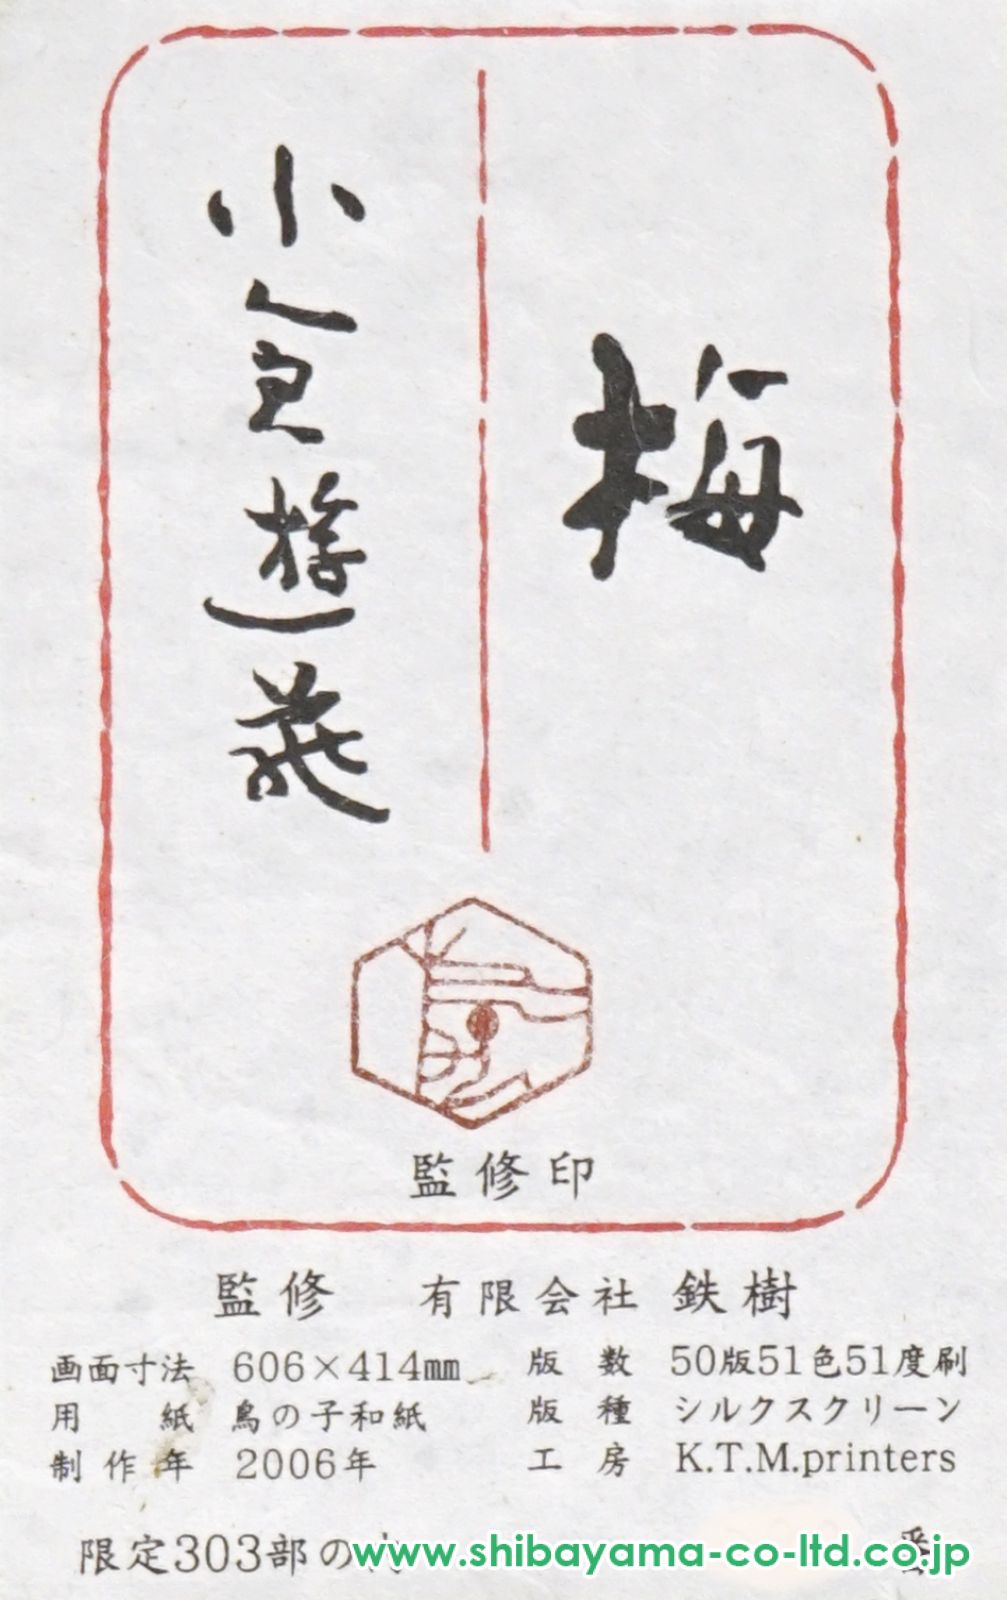 梅
小倉遊亀
監修印
監修 有限会社 鉄樹
画面寸法 606×414㎜ 版数 50版51色51度刷
用紙 鳥の子和紙 版種 シルクスクリーン
制作年 2006年 工房 K.T.M.printers
限定303部の内 番
www.shibayama-co-ltd.co.jp